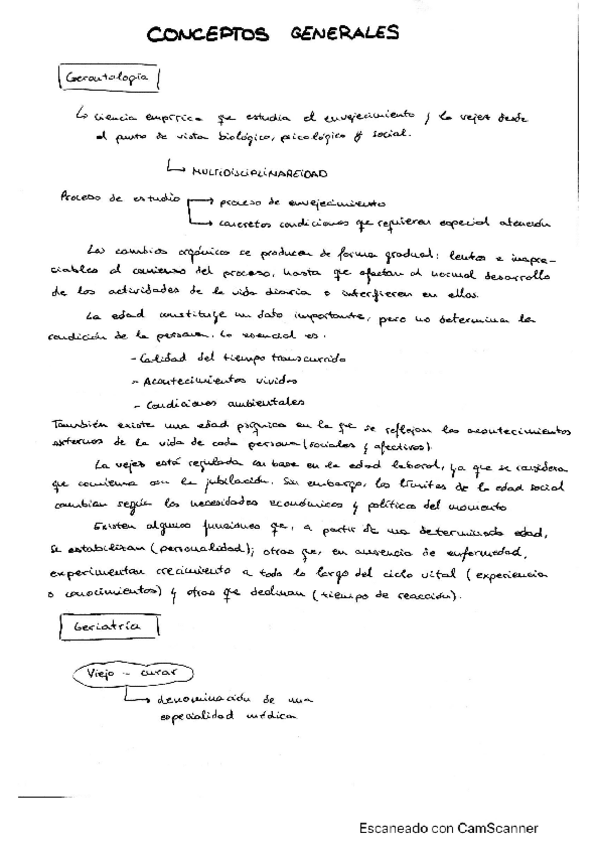 CONCEPTOS GENERALES
Gerontología
↳ ciencia empírica que estudia el envejecimiento y la vejez desde
el punto de vista biológico, psicológico y social.
↳ MULTIDISCIPLINAREIDAD
Proceso de estudio → proceso de envejecimiento
→ concretos condiciones que requieren especial atención
Los cambios orgánicos se producen de forma gradual: lentos e inapre-
ciables al comienzo del proceso, hasta que afectan al normal desarrollo
de las actividades de la vida diaria o interfieren en ellas.
La edad constituye un dato importante, pero no determina la
condición de la persona. Lo esencial es:
- Calidad del tiempo transcurrido
- Acontecimientos vividos
- Condiciones ambientales
También existe una edad psíquica en la que se reflejan los acontecimientos
externos de la vida de cada persona (sociales y afectivos).
La vejez está regulada en base en la edad laboral, ya que se considera
que comienza con la jubilación. Sin embargo, los límites de la edad social
cambian según las necesidades económicas y políticas del momento
Existen algunas funciones que, a partir de una determinada edad,
se estabilizan (personalidad); otras que, en ausencia de enfermedad,
experimentan crecimiento a todo lo largo del ciclo vital (experiencia
o conocimientos) y otras que declinan (tiempo de reacción).
Geriatría
Viejo - curar
↳ denominación de una
especialidad médica
Escaneado con CamScanner